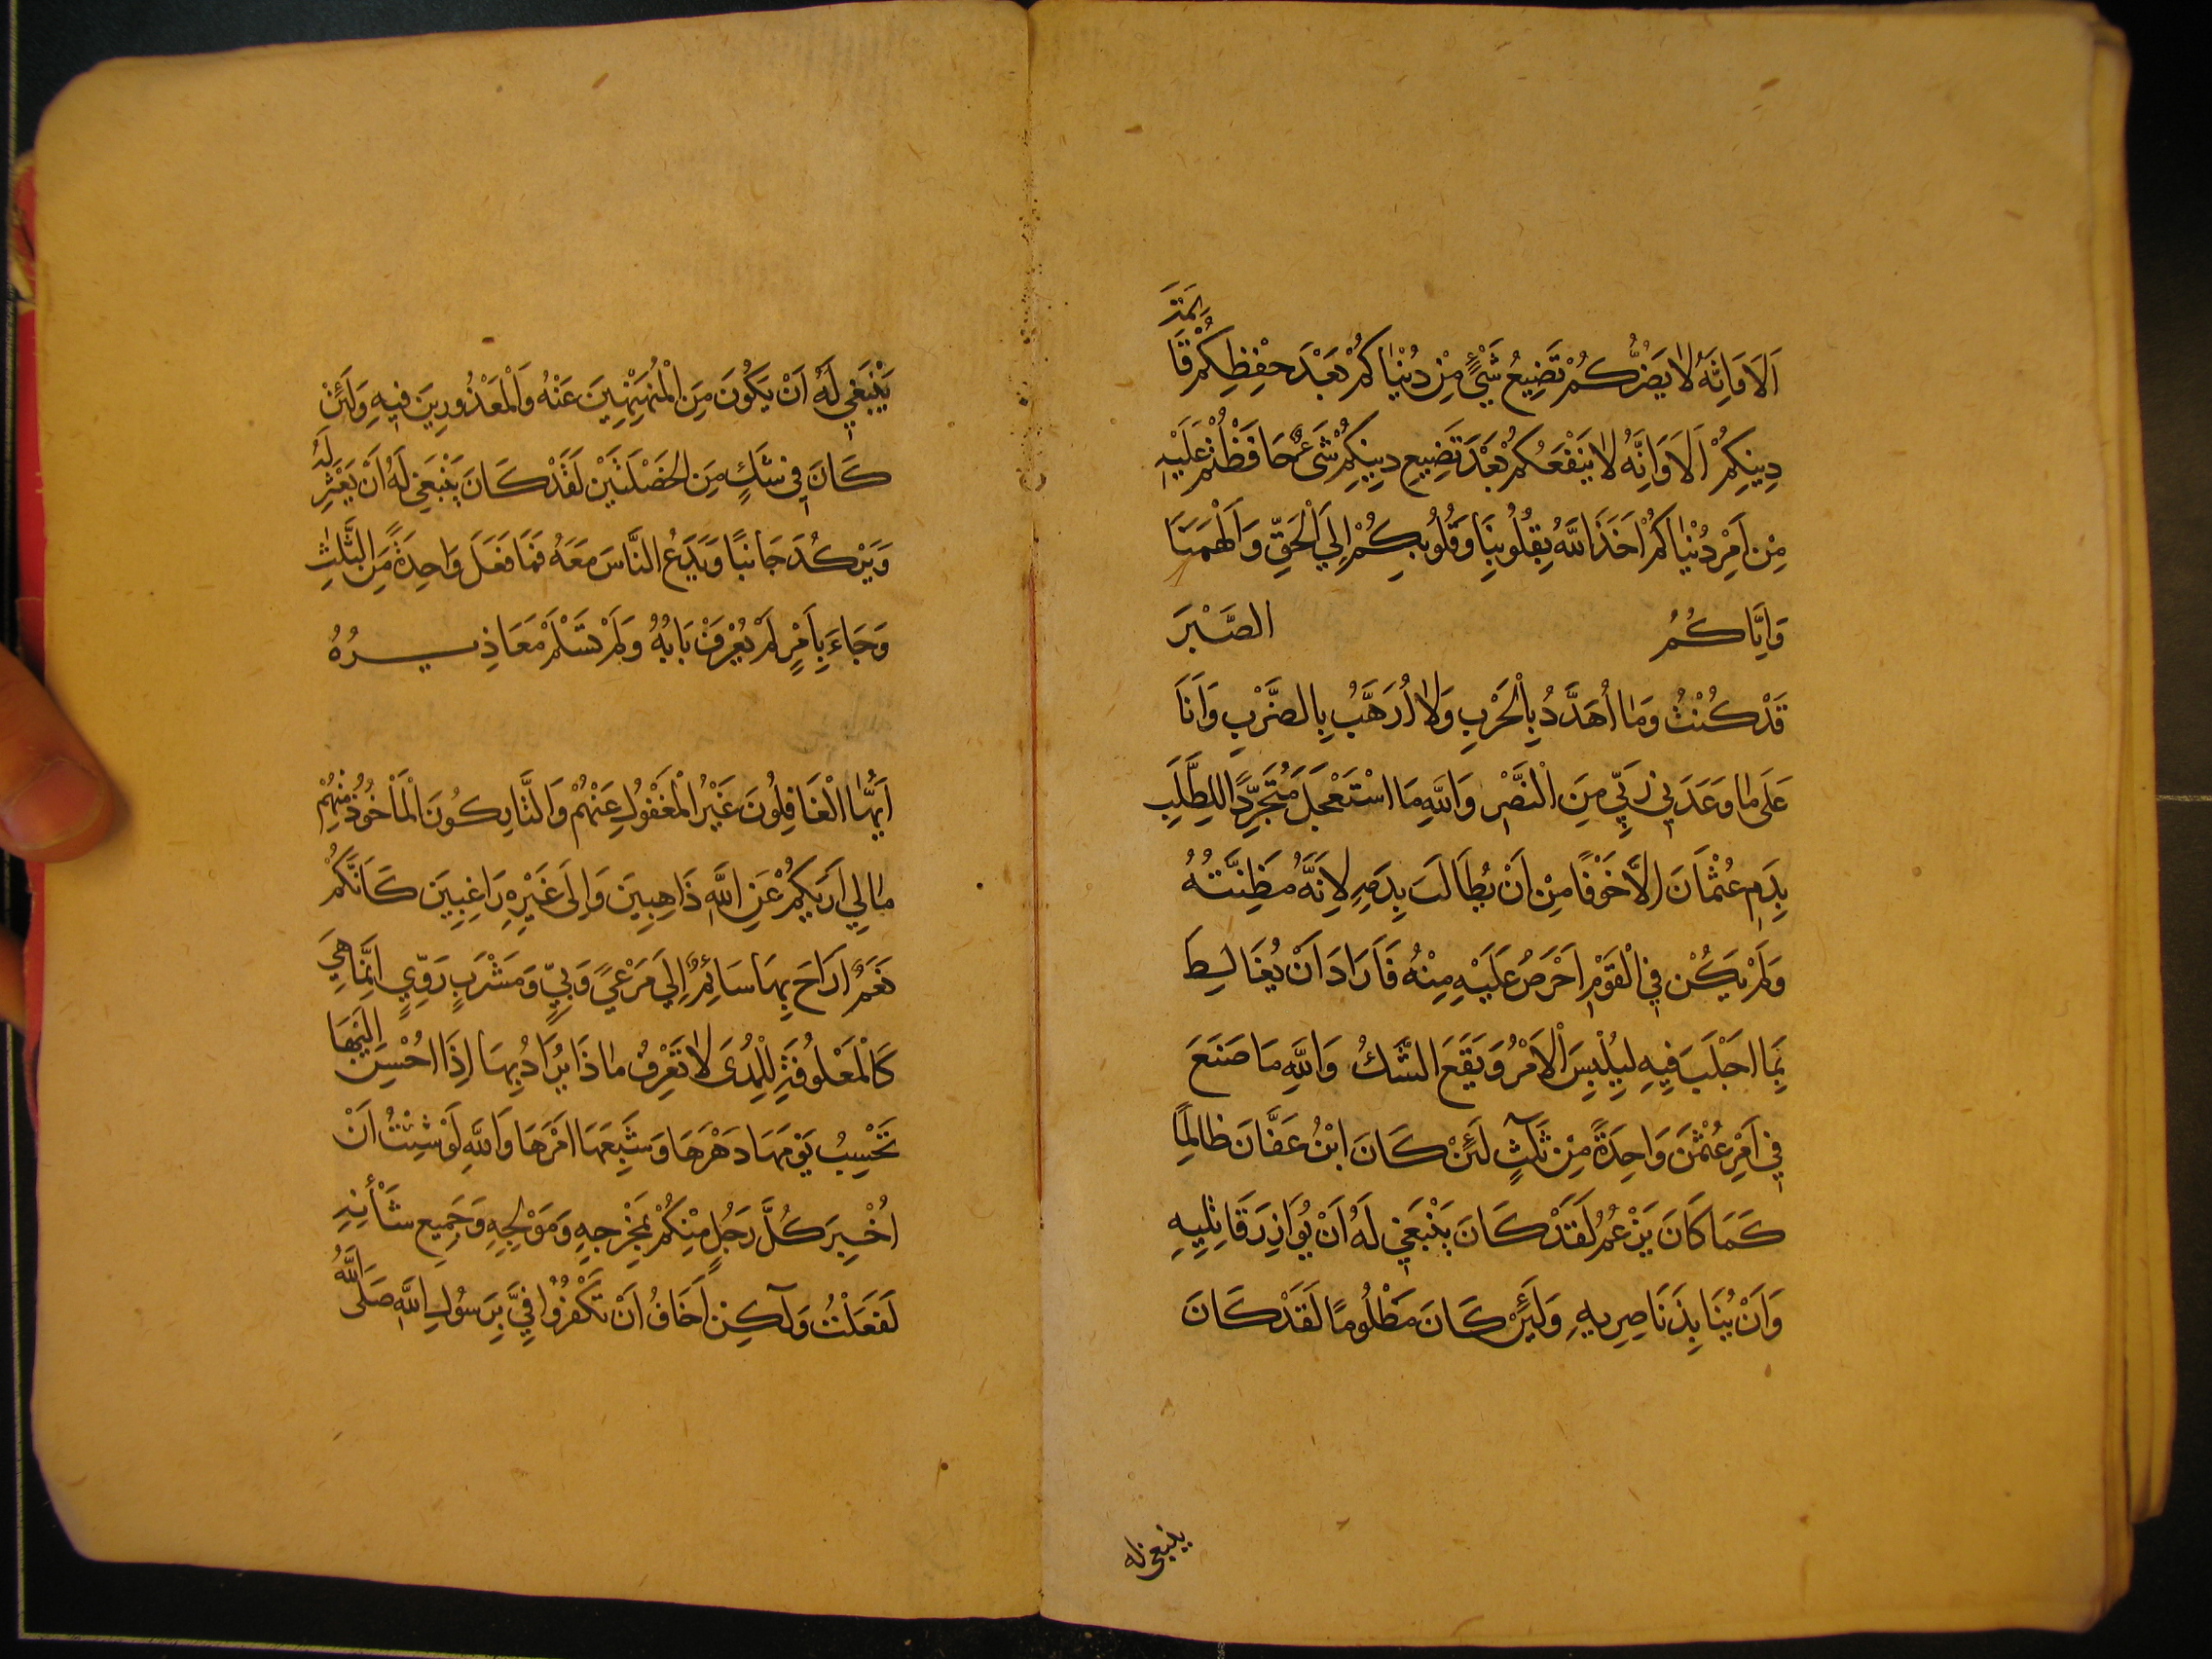 اَلَا وَاِنَّهُ لَا يَضُرُّكُمْ تَضْيِيعُ شَيْءٍ مِنْ دُنْيَاكُمْ بَعْدَ حِفْظِكُمْ قَائِمَةَ
دِينِكُمْ اَلَا وَاِنَّهُ لَا يَنْفَعُكُمْ بَعْدَ تَضْيِيعِ دِينِكُمْ شَيْءٌ حَافَظْتُمْ عَلَيْهِ
مِنْ اَمْرِ دُنْيَاكُمْ اَخَذَ اللّٰهُ بِقُلُوبِنَا وَقُلُوبِكُمْ اِلَي الْحَقِّ وَاَلْهَمَنَا
وَاِيَّاكُمُ الصَّبْرَ
قَدْ كُنْتُ وَمَا اُهَدَّدُ بِالْحَرْبِ وَلَا اُرَهَّبُ بِالضَّرْبِ وَاَنَا
عَلَى مَا وَعَدَنِي رَبِّي مِنَ النَّصْرِ وَاللّٰهِ مَا اسْتَعْجَلَ مُتَجَرِّدًا لِلطَّلَبِ
بِدَمِ عُثْمَانَ اِلَّا خَوْفًا مِنْ اَنْ يُطَالَبَ بِدَمِهِ لِاَنَّهُ مَظِنَّتُهُ
وَلَمْ يَكُنْ فِي الْقَوْمِ اَحْرَصُ عَلَيْهِ مِنْهُ فَاَرَادَ اَنْ يُغَالِطَ
بِمَا اَجْلَبَ فِيهِ لِيُلْبِسَ الْاَمْرُ وَيَقَعَ الشَّكُّ وَاللّٰهِ مَا صَنَعَ
فِي اَمْرِ عُثْمٰنَ وَاحِدَةً مِنْ ثَلٰثٍ لَئِنْ كَانَ ابْنُ عَفَّانَ ظَالِمًا
كَمَا كَانَ يَزْعُمُ لَقَدْ كَانَ يَنْبَغِي لَهُ اَنْ يُوَازِرَ قَاتِلِيهِ
وَاَنْ يُنَابِذَ نَاصِرِيهِ وَلَئِنْ كَانَ مَظْلُومًا لَقَدْ كَانَ
ينبغي له
يَنْبَغِي لَهُ اَنْ يَكُونَ مِنَ الْمُنَهْنِهِينَ عَنْهُ وَالْمَعْذُورِينَ فِيهِ وَلَئِنْ
كَانَ فِي شَكٍّ مِنَ الْخَصْلَتَيْنِ لَقَدْ كَانَ يَنْبَغِي لَهُ اَنْ يَعْتَزِلَهُ
وَيَرْكُدَ جَانِبًا وَيَدَعَ النَّاسَ مَعَهُ فَمَا فَعَلَ وَاحِدَةً مِنَ الثَّلٰثِ
وَجَاءَ بِاَمْرٍ لَمْ يُعْرَفْ بَابُهُ وَلَمْ تَسْلَمْ مَعَاذِيرُهُ
اَيُّهَا الْغَافِلُونَ غَيْرُ الْمَغْفُولِ عَنْهُمْ وَالتَّارِكُونَ الْمَاْخُوذُ مِنْهُمْ
مَا لِي اَرٰيكُمْ عَنِ اللّٰهِ ذَاهِبِينَ وَاِلَى غَيْرِهِ رَاغِبِينَ كَاَنَّكُمْ
نَعَمٌ اَرَاحَ بِهَا سَائِمٌ اِلَي مَرْعًي وَبِيٍّ وَمَشْرَبٍ رَوِيٍّ اِنَّمَا هِيَ
كَالْمَعْلُوفَةِ لِلْمُدَى لَا تَعْرِفُ مَاذَا يُرَادُ بِهَا اِذَا اُحْسِنَ اِلَيْهَا
تَحْسِبُ يَوْمَهَا دَهْرَهَا وَشِبَعَهَا اَمْرَهَا وَاللّٰهِ لَوْ شِئْتُ اَنْ
اُخْبِرَ كُلَّ رَجُلٍ مِنْكُمْ بِمَخْرَجِهِ وَمَوْلِجِهِ وَجَمِيعِ شَاْنِهِ
لَفَعَلْتُ وَلٰكِنْ اَخَافُ اَنْ تَكْفُرُوا فِيَّ بِرَسُولِ اللّٰهِ صَلَّى اللّٰهُ